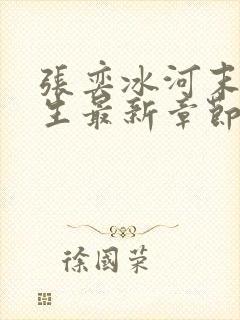 張奕冰河末
生最新章節
徐國荣